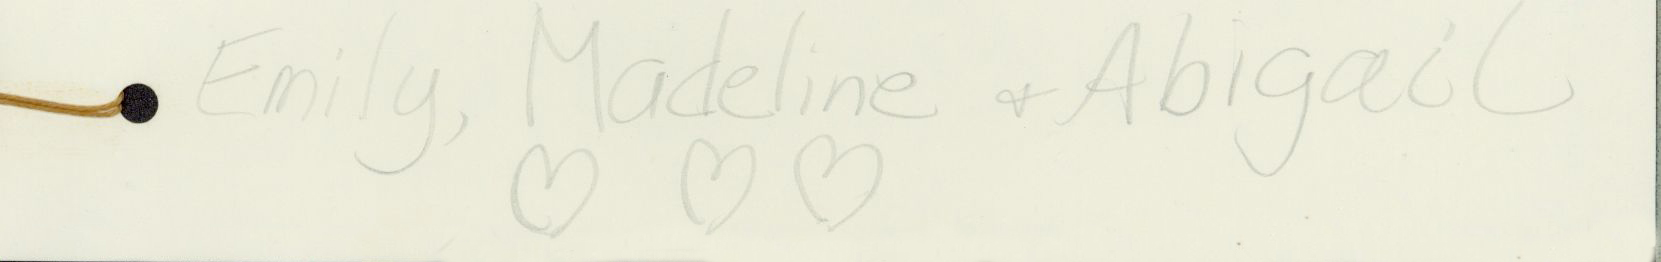 Emily, Madeline + Abigail
♡ ♡ ♡